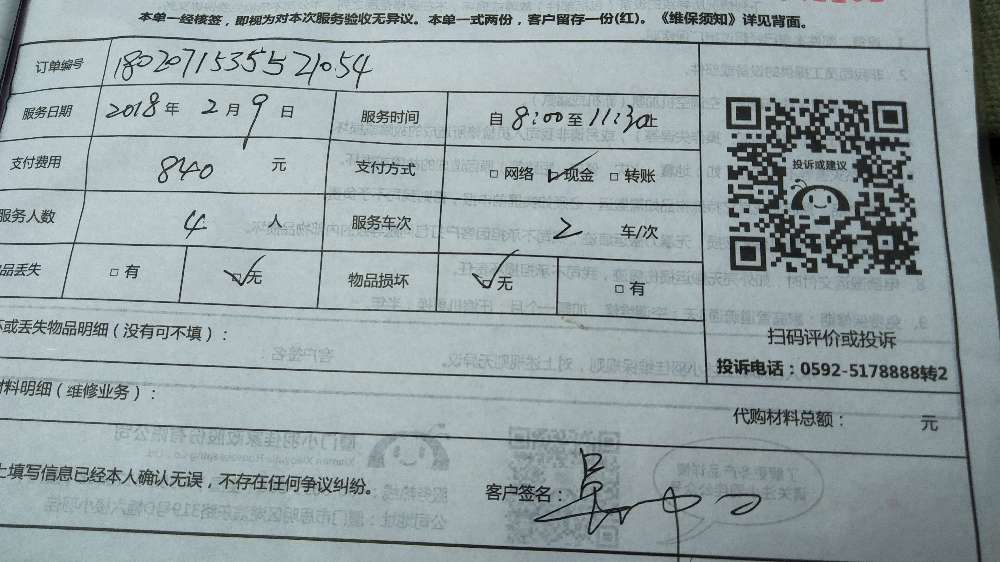 本单一经核签，即视为对本次服务验收无异议。本单一式两份，客户留存一份(红)。《维保须知》详见背面。
订单编号 180207153552​1054
服务日期 2018 年 2 月 9 日 服务时间 自 8:00 至 11:30 止
支付费用 840 元 支付方式 □ 网络 ☑ 现金 □ 转账
服务人数 4 人 服务车次 2 车/次
品丢失 □ 有 ☑ 无 物品损坏 ☑ 无 □ 有
投诉或建议
扫码评价或投诉
投诉电话：0592-5178888转2
坏或丢失物品明细（没有可不填）：
材料明细（维修业务）：
代购材料总额： 元
上填写信息已经本人确认无误，不存在任何争议纠纷。 客户签名：